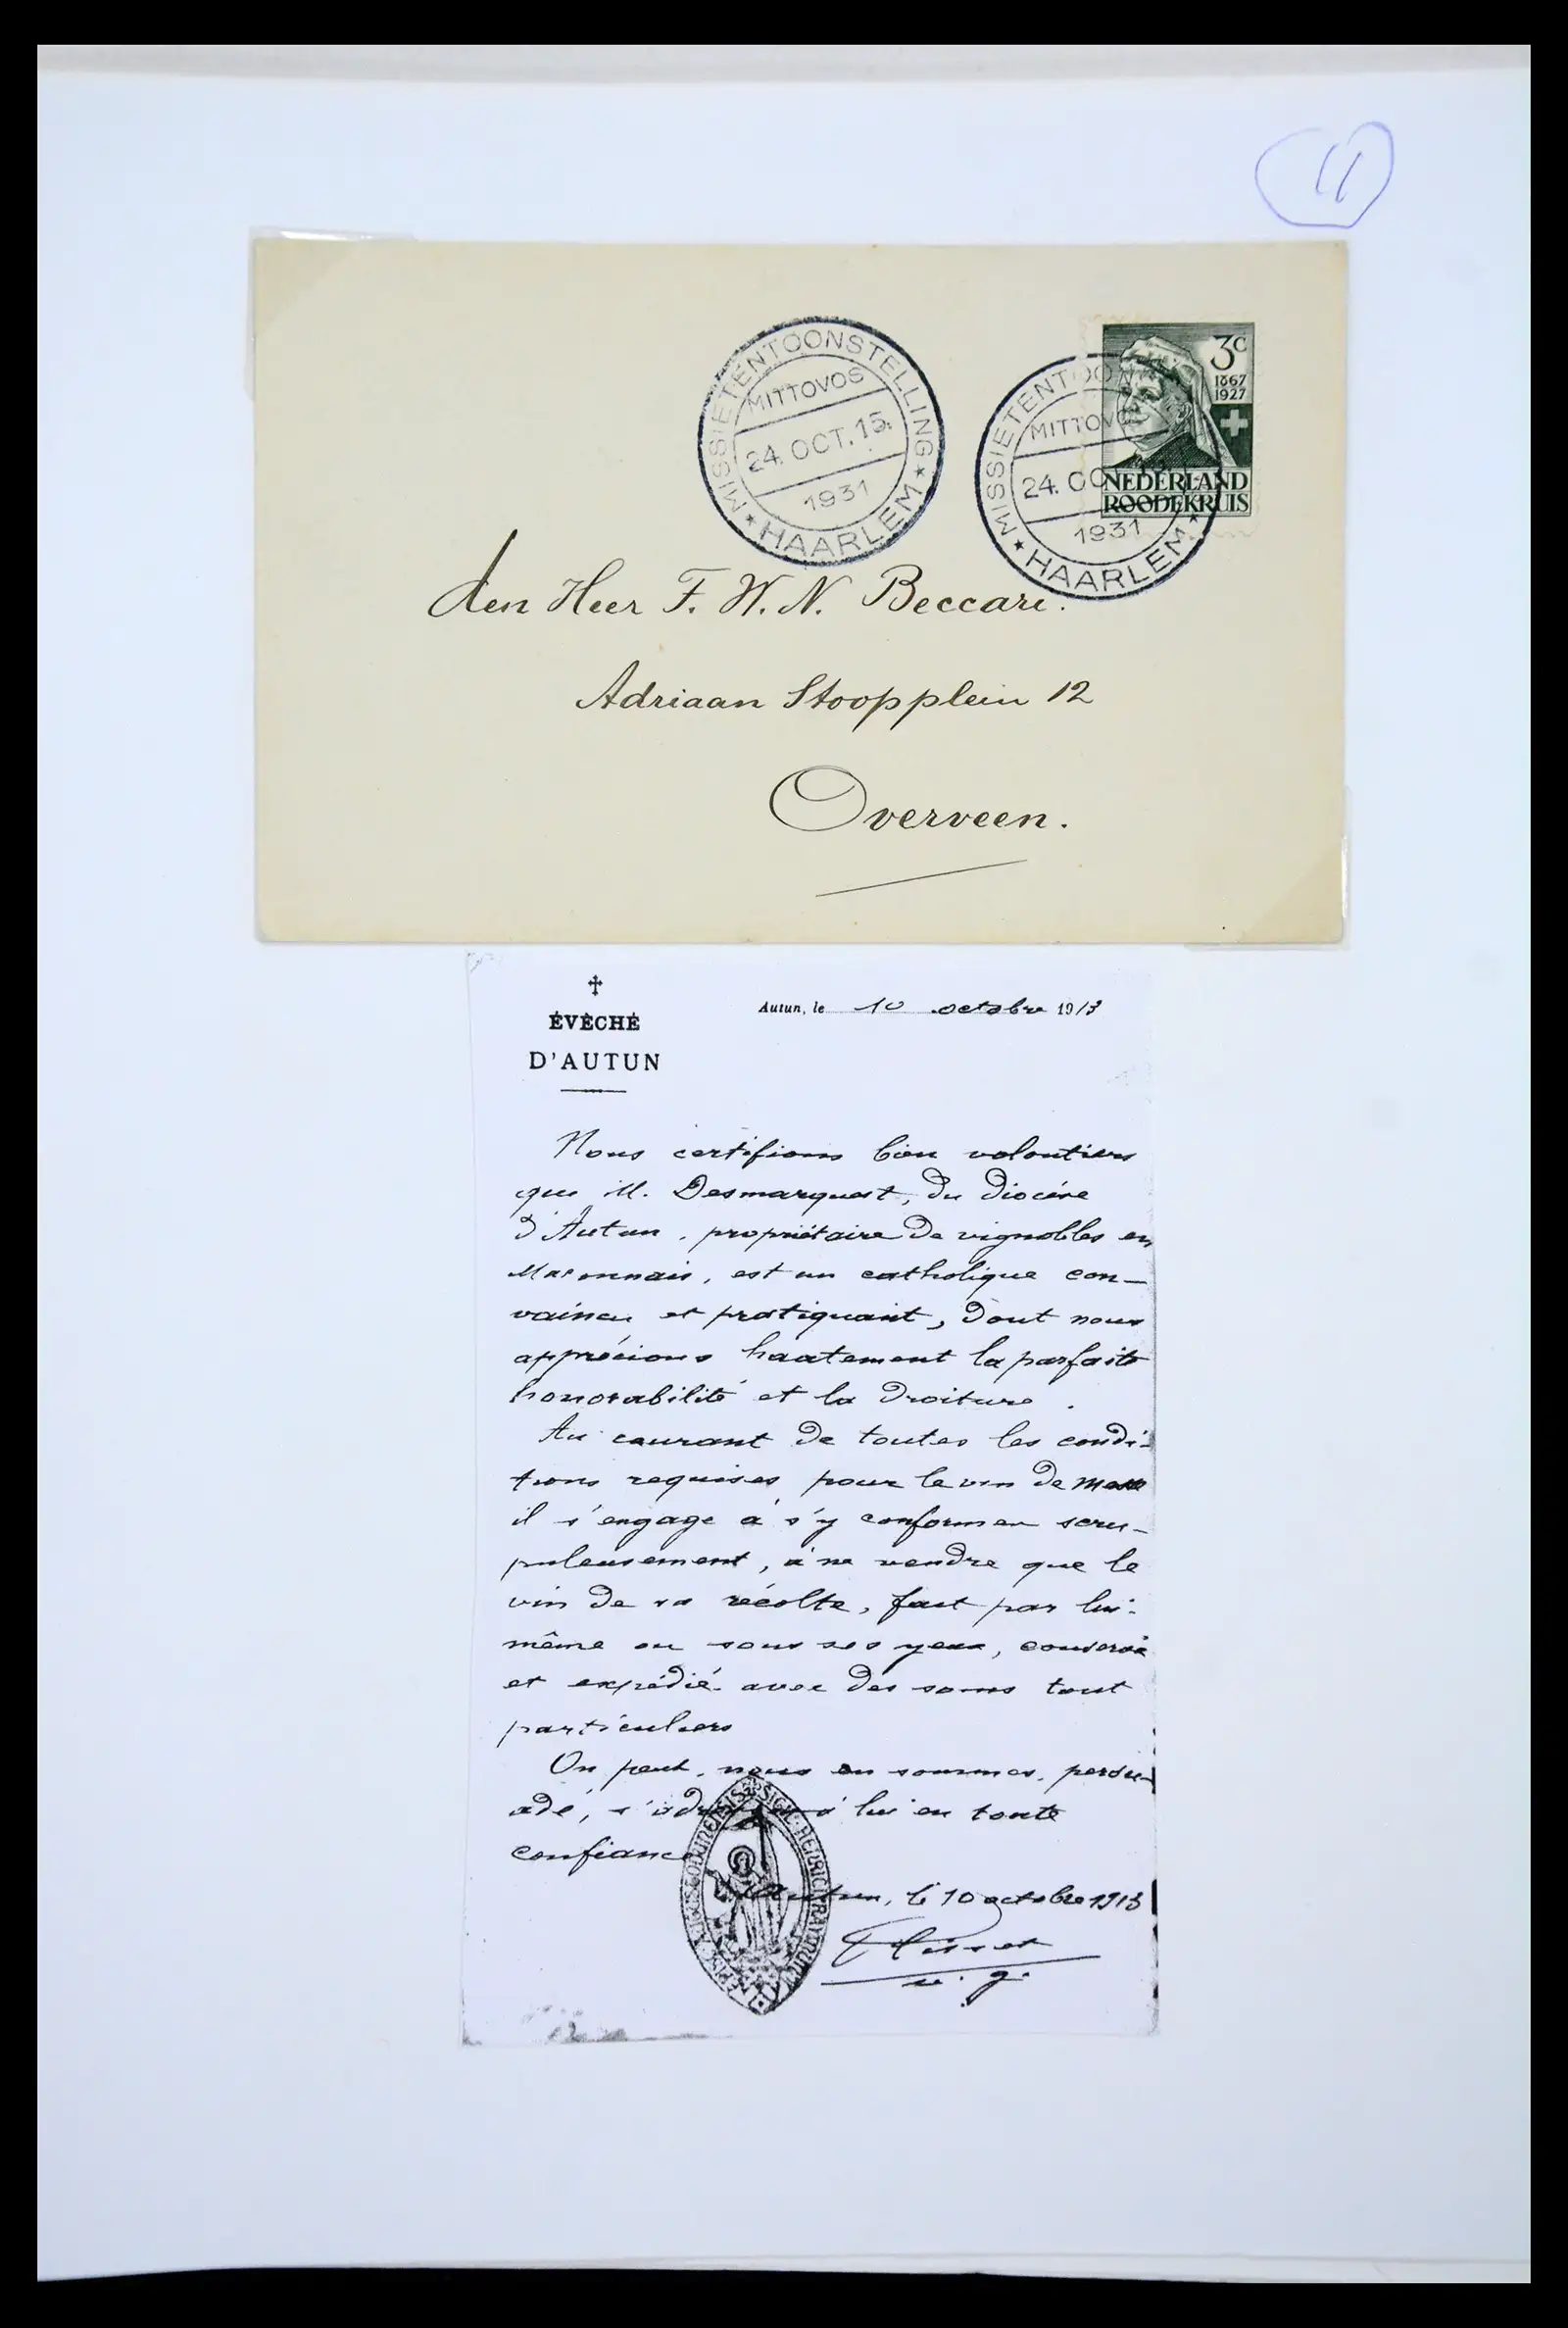 11
MISSIETENTOONSTELLING
MITTOVOS
24. OCT. 15.
1931
★ HAARLEM ★
3c
1867
1927
NEDERLAND
ROODEKRUIS
MISSIETENTOON
MITTOVO
24. OC
1931
★ HAARLEM ★
den Heer F. W. N. Beccari.
Adriaan Stoopplein 12
Overveen.
ÉVÊCHÉ
D'AUTUN
Autun, le 10 octobre 1913
Nous certifions bien volontiers
que M. Desmarquest, du diocèse
d'Autun, propriétaire de vignobles en
Maconnais, est un catholique con-
vaincu et pratiquant, dont nous
apprécions hautement la parfaite
honorabilité et la droiture.
Au courant de toutes les condi-
tions requises pour le vin de messe
il s'engage à s'y conformer scru-
puleusement, à ne vendre que le
vin de sa récolte, fait par lui-
même ou sous ses yeux, conservé
et expédié avec des soins tout
particuliers
On peut, nous en sommes persu-
adé, s'adresser à lui en toute
confiance
Autun, le 10 octobre 1913
v. g.